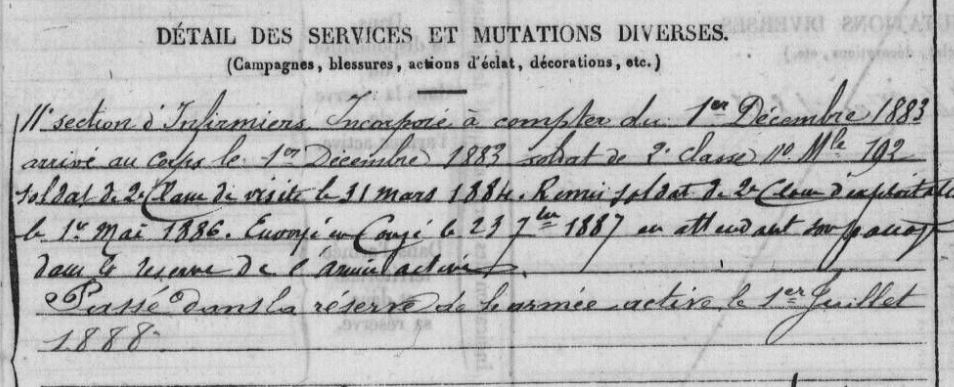 DÉTAIL DES SERVICES ET MUTATIONS DIVERSES.
(Campagnes, blessures, actions d'éclat, décorations, etc.)
11e section d'Infirmiers. Incorporé à compter du 1er Décembre 1883
arrivé au corps le 1er Décembre 1883 soldat de 2e classe no Mle 192
soldat de 2e Classe de visite le 31 mars 1884. Remis soldat de 2e Classe d'exploitatn
le 1er Mai 1886. Envoyé en Congé le 23 7bre 1887 en attendant son passage
dans la réserve de l'armée active.
Passé dans la réserve de l'armée active le 1er Juillet
1888